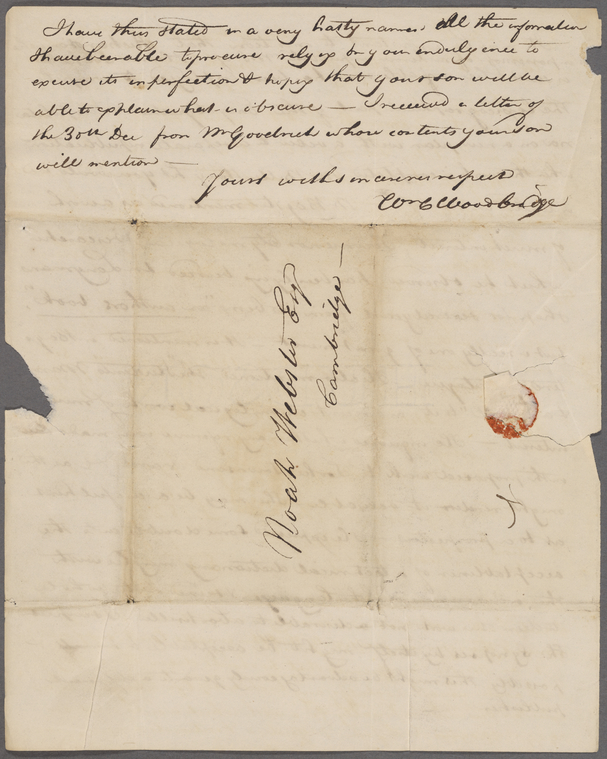 I have thus stated in a very hasty manner all the information
I have been able to procure relying on your indulgence to
excuse its imperfection & hoping that your son will be
able to explain what is obscure — I received a letter of
the 30th Dec from Mr Goodrich whose contents your son
will mention —
Yours with sincere respect
Wm C Woodbridge
Noah Webster Esq
Cambridge —